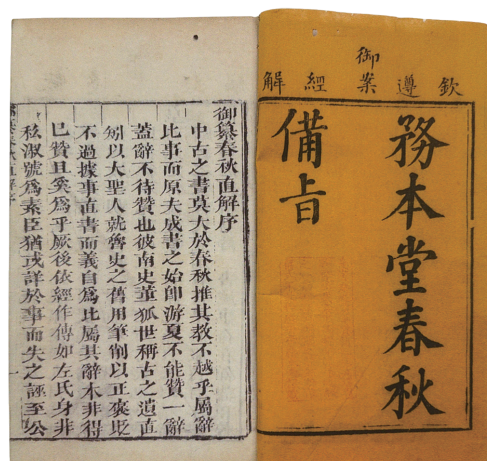 欽遵御案經解
務本堂春秋
備旨
御纂春秋直解序
中古之書莫大於春秋推其教不越乎屬辭
比事而原夫成書之始卽游夏不能贊一辭
蓋辭不待贊也彼南史董狐世稱古之遺直
矧以大聖人就魯史之舊用筆削以正襃貶
不過據事直書而義自爲比屬其辭本非得
已贊且奚爲乎厥後依經作傳如左氏身非
私淑號爲素臣猶或詳於事而失之誣至公